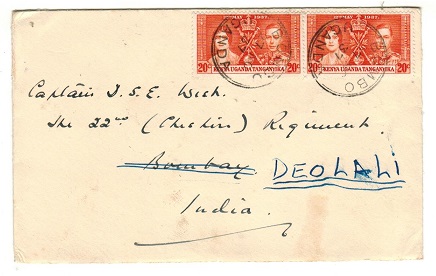 12TH MAY 1937.
12TH MAY 1937.
20c KENYA UGANDA TANGANYIKA 20c
20c KENYA UGANDA TANGANYIKA 20c
UGANDA
UGANDA
Captain J.S.E.
The 22nd (Cheshire) Regiment.
Bombay DEOLALI
India.